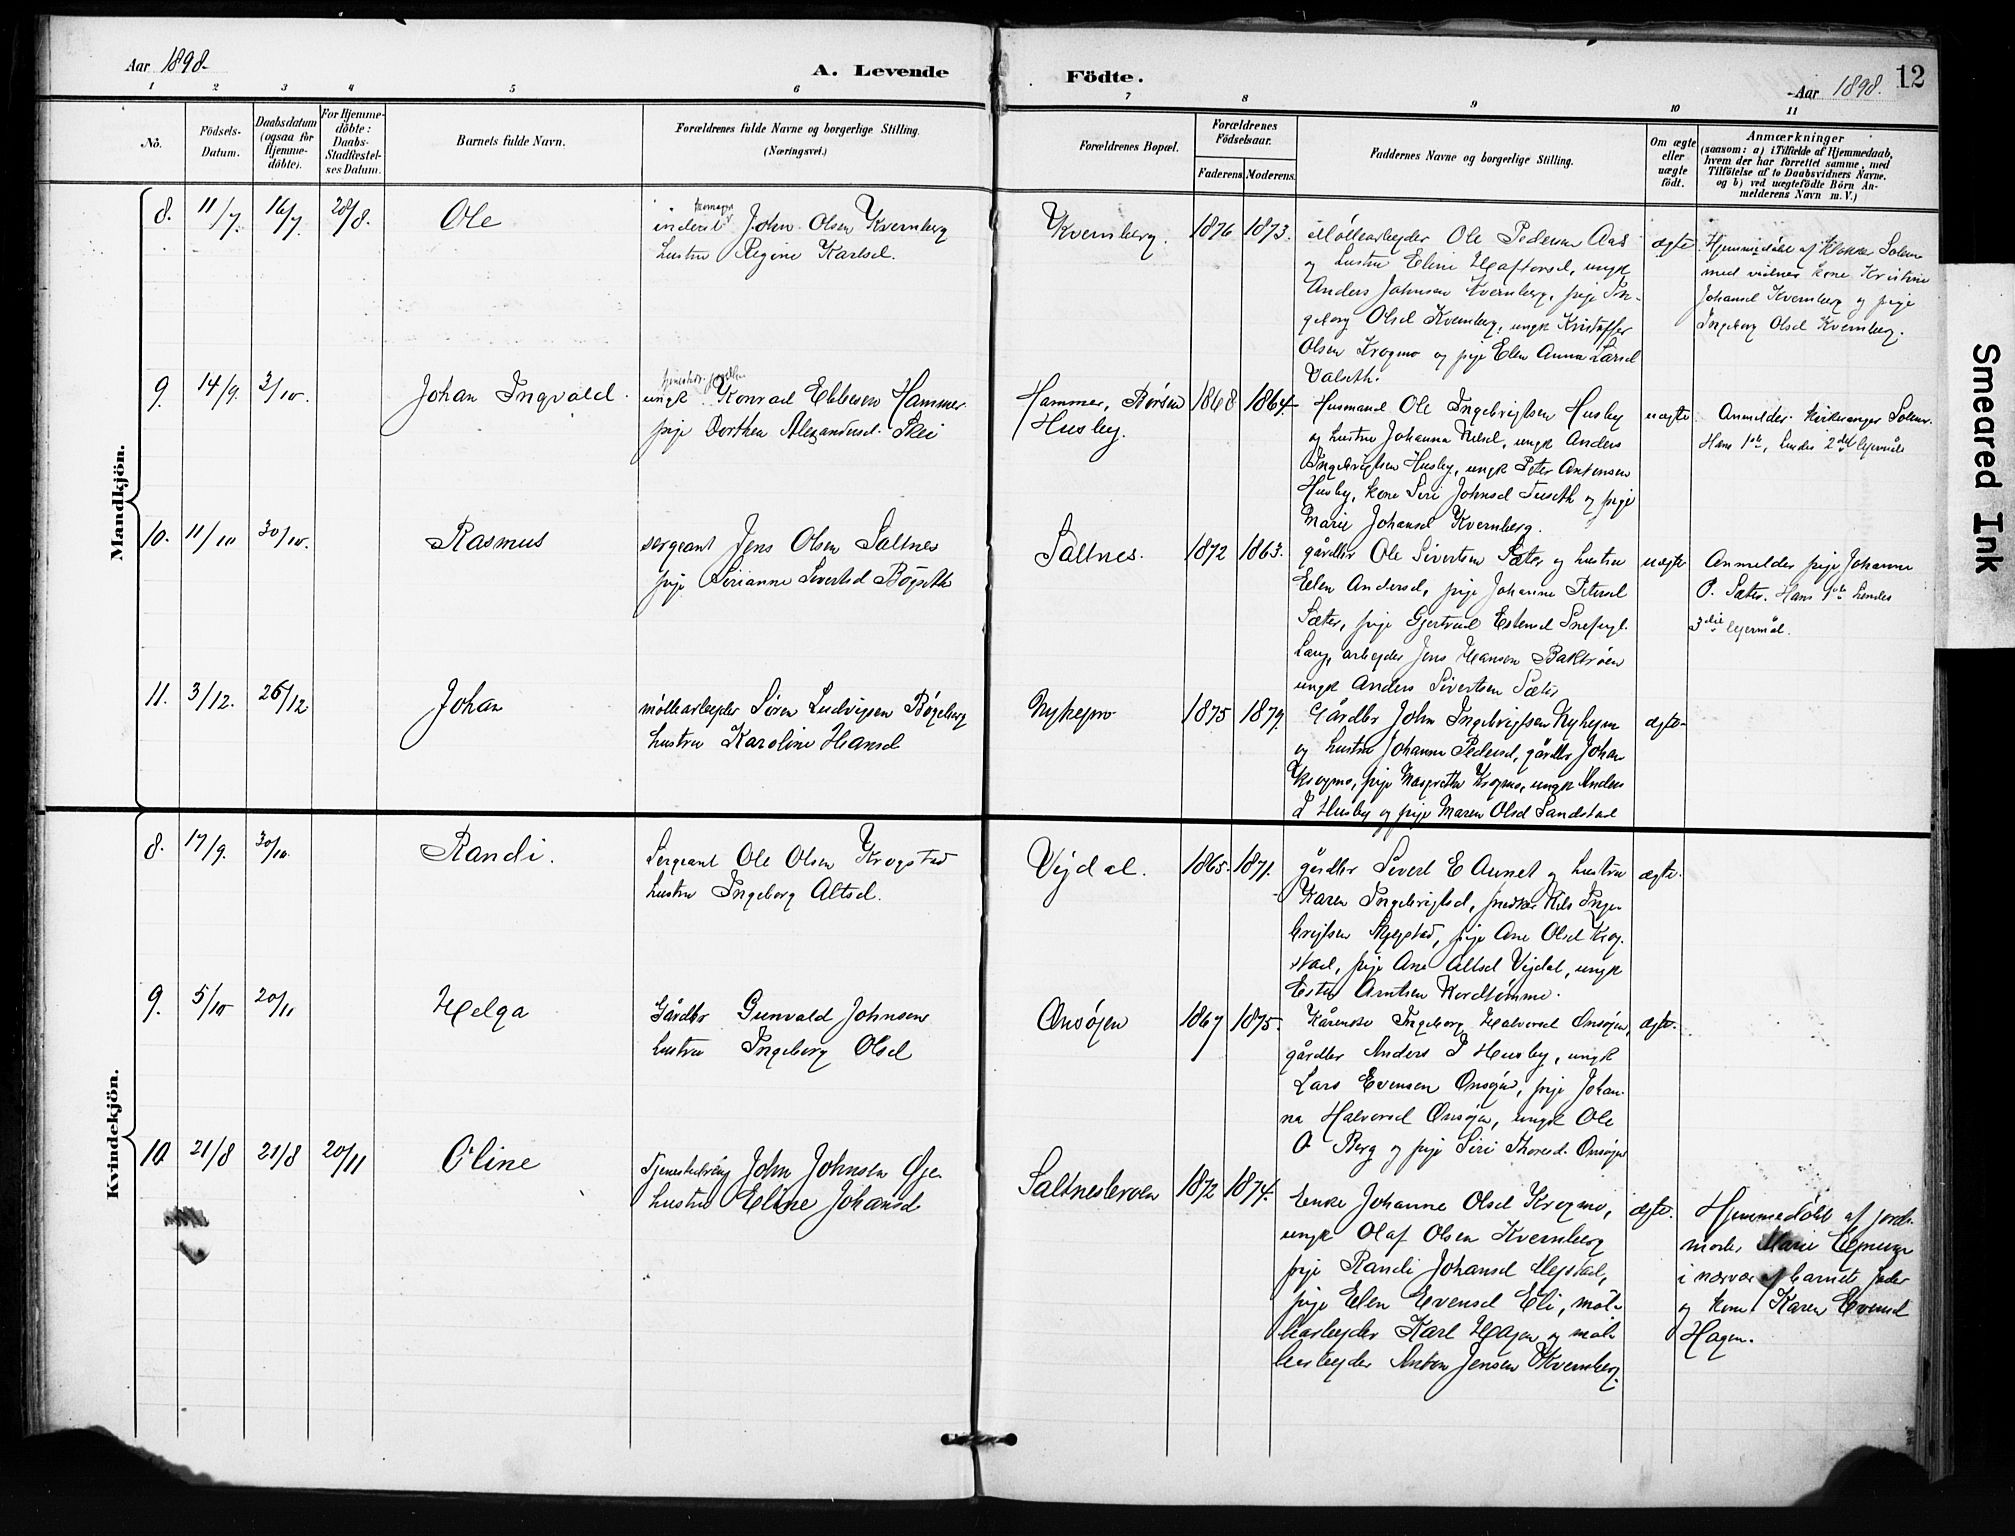 Aar 1898.
A. Levende
Födte.
Aar 1898.
12
1 2 3 4 5 6 7 8 9 10 11
Nö.
Födsels-
Datum.
Daabsdatum
(ogsaa for
Hjemme-
döbte).
For Hjemme-
döbte:
Daabs-
Stadfæstel-
ses Datum.
Barnets fulde Navn.
Forældrenes fulde Navne og borgerlige Stilling.
(Næringsvei.)
Forældrenes Bopæl.
Forældrenes
Födselsaar.
Faderens. Moderens.
Faddernes Navne og borgerlige Stilling.
Om ægte
eller
uægte
födt.
Anmærkninger
(saasom: a) i Tilfælde af Hjemmedaab,
hvem der har forrettet samme, med
Tilföielse af to Daabsvidners Navne.
og b) ved uægtefödte Börn An-
melderens Navn m. V.)
Mandkjön.
8. 11/7 16/7 28/8. Ole
inderst John Olsen Kvernberg
hustru Regine Karlsd.
Kvernberg. 1876 1873.
Möllearbejder Ole Pedersen Aas
og hustru Eline Haftorsd, ungk
Anders Johnsen Kvernberg, pige In-
geborg Olsd Kvernberg, ungk Kristoffer
Olsen Krogmo og pige Elen Anna Larsd
Valseth.
ægte
Hjemmedöbt af Solem
med vidner kone Kristine
Johansd Kvernberg og pige
Ingeborg Olsd Kvernberg.
9. 14/9. 3/10. Johan Ingvald.
ungk. Konrad Ebbesen Hammer
pige Dorthea Alexandersd. Skei
Hammer, Börsen
Husby.
1868 1864
Husmand Ole Ingebrigtsen Husby
og hustru Johanna Nilsd, ungk Anders
Ingebrigtsen Husby, ungk Peter Antonsen
Husby, kone Siri Johnsd Tuseth og pige
Marie Johansd Kvernberg.
uægte
Anmelder. Kirkesanger Solem.
Hans 1ste, hendes 2det lejermål
10. 11/10 30/10. Rasmus
sergeant Jens Olsen Saltnes
pige Sirianne Sivertsd Böseth
Saltnes. 1872 1863.
gårdbr Ole Sivertsen Sæter og hustru
Elen Andersd, pige Johanna Petersd
Sæter, pige Gjertrud Estensd Snefugl-
haug, arbejder Jens Hansen Bakkröen
ungk Anders Sivertsen Sæter
uægte
Anmelder pige Johanne
P. Sæter. Hans 1ste hendes
3die lejermål.
11. 3/12. 26/12. Johan
möllearbejder Sören Ludvigsen Bögeberg
hustru Karoline Hansd
1875 1879.
Gårdbr John Ingebrigtsen
og hustru Johanna Pedersd, gårdbr Johan
Krogmo, pige Margrethe Krogmo, ungk Anders
I Husby og pige Maren Olsd Sandstad
ægte
Kvindekjön.
8. 17/9. 30/10. Randi.
Sergeant Ole Olsen Krogstad
hustru Ingeborg Altsd.
Vejdal. 1865. 1871.
gårdbr Sivert E Aunet og hustru
Karen Ingebrigtsd, Nils Inge-
brigtsen pige Ane Olsd Krog-
stad, pige Ane Altsd Vejdal, ungk
Esten Arntsen Nordtömme.
ægte.
9. 5/10 20/11 Helga
Gårdbr Gunvald Johnsen
hustru Ingeborg Olsd
Onsöjen 1867 1875.
Kårenke Ingeborg Halvorsd Onsöjen,
gårdbr Anders I Husby, ungk
Lars Evensen Onsöjen, pige Johan-
na Halvorsd Onsöjen, ungk Ole
O Berg og pige Siri Thoresd. Onsöjen
ægte.
10 21/8 21/8 20/11 Oline
Tjenestedreng John Johnsen Öje
hustru Eline Johansd
Saltnesleroen 1872 1874.
Enke Johanne Olsd Krogmo,
ungk Olaf Olsen Kvernberg
pige Randi Johansd Megstad,
pige Elen Evensd Eli, möl-
learbejder Karl Hagen og möl-
learbejder Anton Jensen Kvernberg.
ægte.
Hjemmedöbt af jord-
moder Marie
i nærvær af barnets fader
og kone Karen Evensd
Hagen.
Smeared Ink